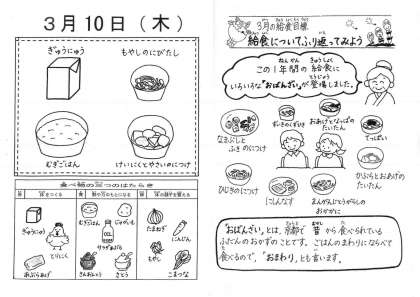 3月10日(木)
ぎゅうにゅう
もやしのにびたし
むぎごはん
けいにくとやさいのにつけ
食べ物の三つのはたらき
ぎゅうにゅう
とりにく
あぶらあげ
むぎごはん
じゃがいも
サラダあぶら
さとう
たまねぎ
にんじん
もやし
こまつな
3月の給食目標
給食についてふり返ってみよう
この1年間の給食に
いろいろな"おばんざい"が登場しました。
なまぶしと
ふきのにつけ
おあげとなっぱの
たいたん
てっぱい
ひじきのにつけ
にしんなす
まんがんじとうがらしの
おかかに
かぶらとおあげの
たいたん
"おばんざい"とは、京都で昔から食べられている
ふだんのおかずのことです。ごはんのまわりにならべて
食べるので、"おまわり"とも言います。